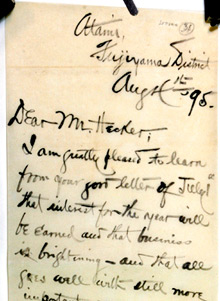 Atami,
Fujiyama District
Aug 4th 95.
Dear Mr. Hecker;
I am greatly pleased to learn
from your good letter of July
that interest for the year will
be earned and that business
is brightening – and that all
goes well with still more